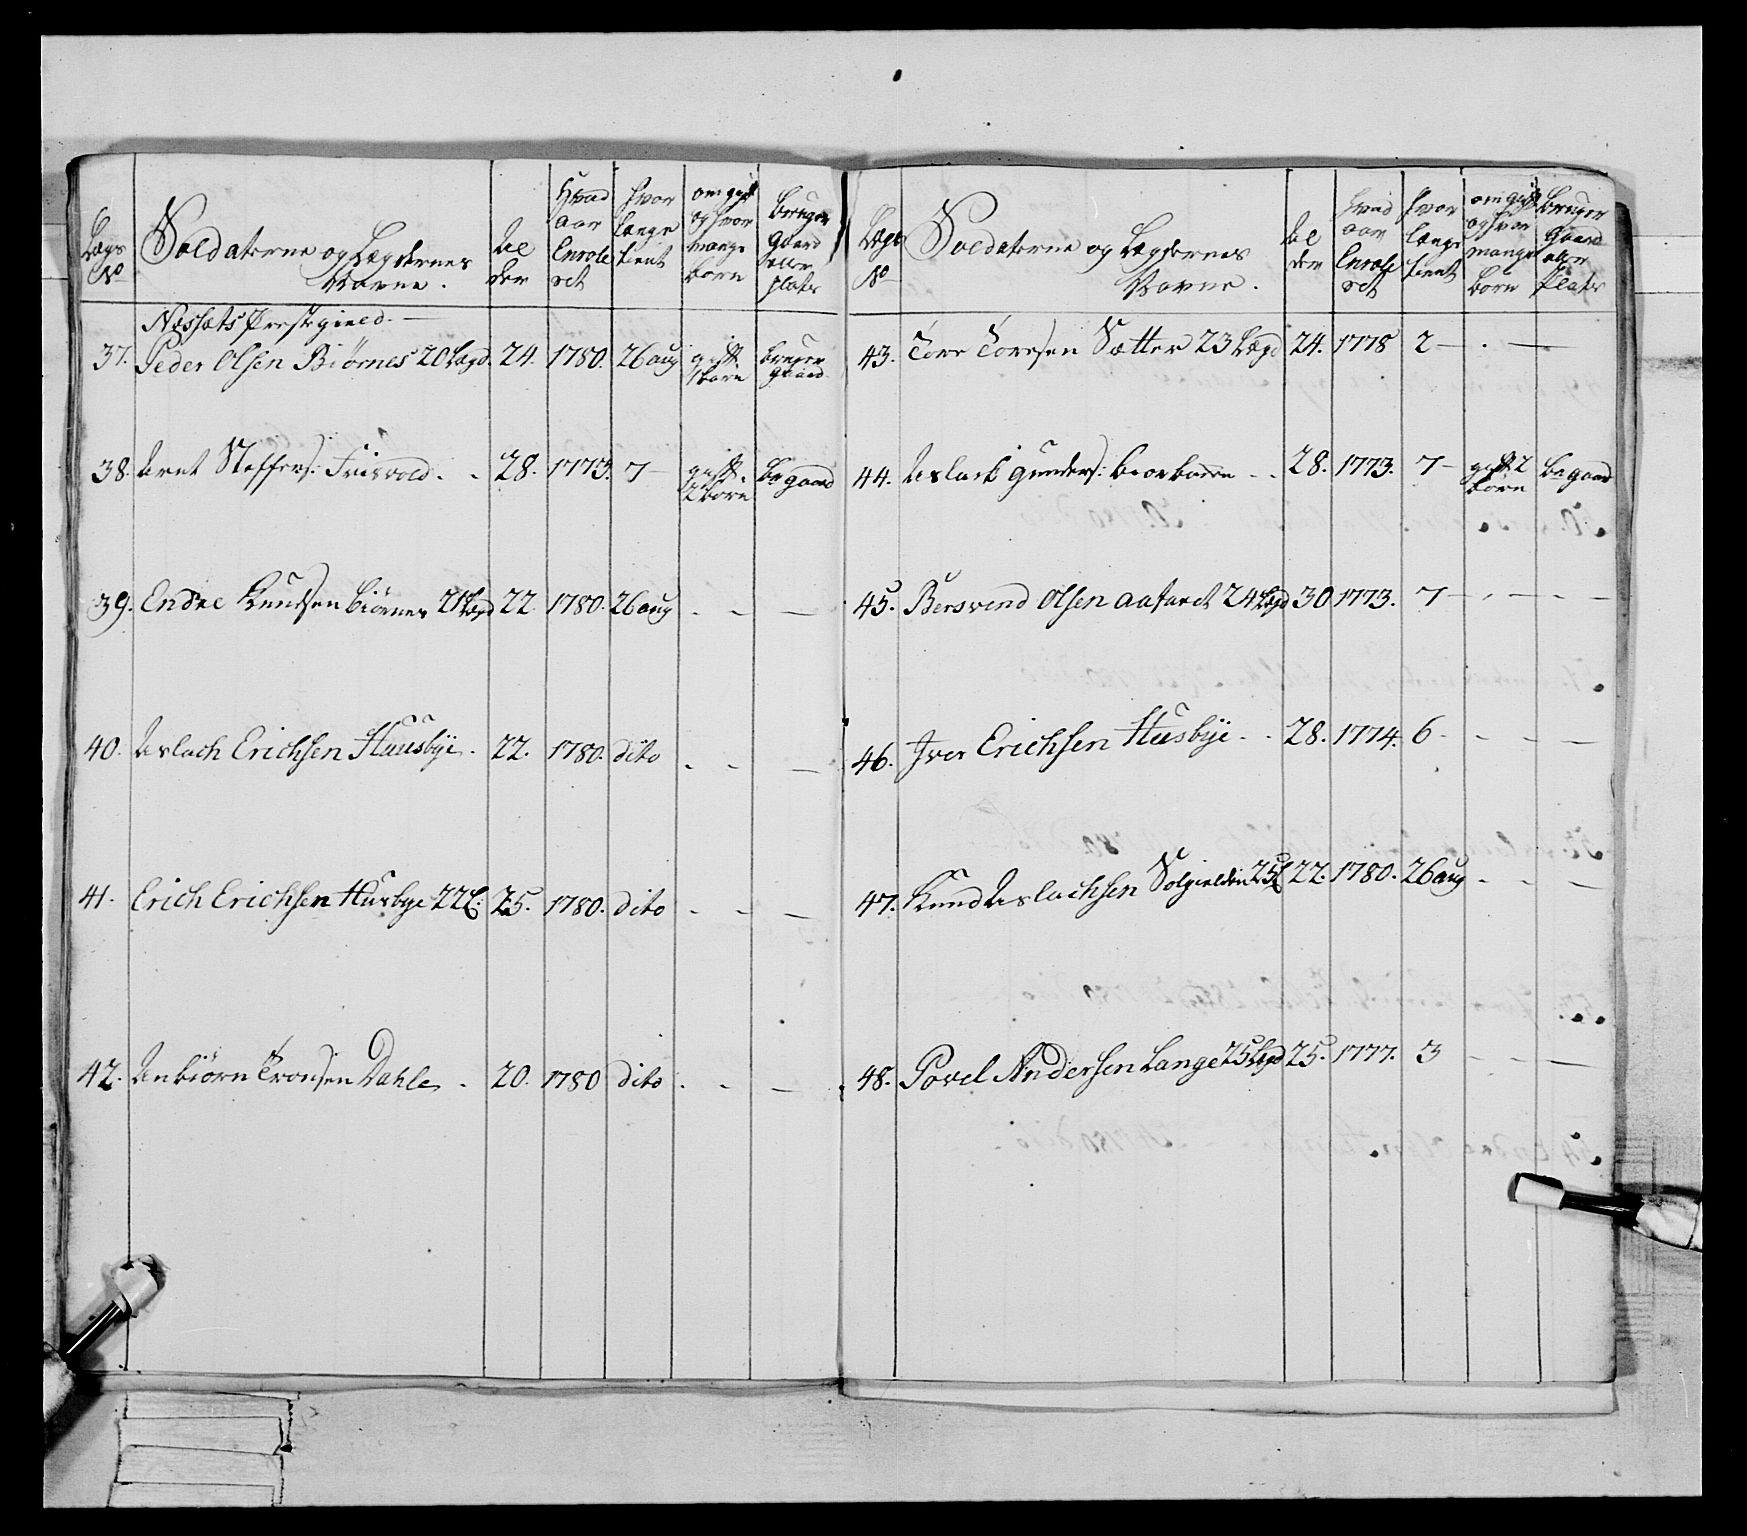 Lægs No
Soldaterne og Lægdernes Navne.
Al der
Hvad aar Enrole ret
hvor længe tient
om gift og hvor mange børn
bruger Gaard eller plads
Næssets Præstegield.
37. Peder Olsen Biörnes 20 Lægd. 24. 1780. 26 aug gift 1 barn bruger gaard
38. Arnt Steffens: Frisvold. 28. 1773. 7 gift 2 børn br gaard
39. Endre Knudsen Biörnes 21 Lægd 22 1780. 26 aug - - -
40. Aslach Erichsen Huusbye. 22. 1780. dito - - -
41. Erich Erichsen Husbye 22 L: 25. 1780. dito - - -
42. Anbiörn Tronsen Dahle. 20. 1780 dito - - -
Lægs No
Soldaterne og Lægdernes Navne.
Al der
hvad aar Enrole ret
hvor længe tient
om gift og hvor mange børn
bruger Gaard eller Plads
43. Tore Toresen Sætter 23 Lægd 24. 1778 2 - - -
44. Aslack Gunders: 28. 1773. 7 - gift 2 børn br gaard
45. Bersvend Olsen 24 Lægd 30 1773. 7 - - - -
46. Iver Erichsen Husbye - - 28. 1774. 6 - - - -
47. Knud Aslachsen Solgielden 25 L 22. 1780. 26 aug - - -
48. Povel Andersen Lange 25 Lægd 25. 1777. 3 - - -